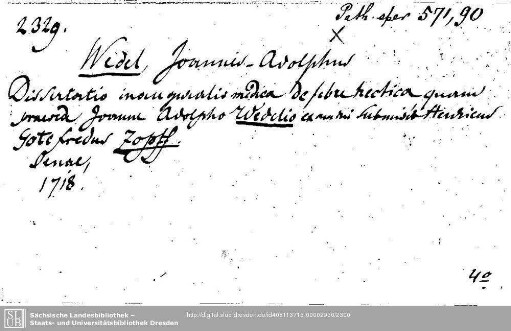 2329.
Path. spec. 571,90
X
Wedel, Joannes-Adolphus
Dissertatio inauguralis medica de febre hectica quam
praeside Joanne Adolpho Wedelio examini submisit Henricus
Gotefredus Zopff.
Jenae,
1718.
4o
Sächsische Landesbibliothek –
Staats- und Universitätsbibliothek Dresden